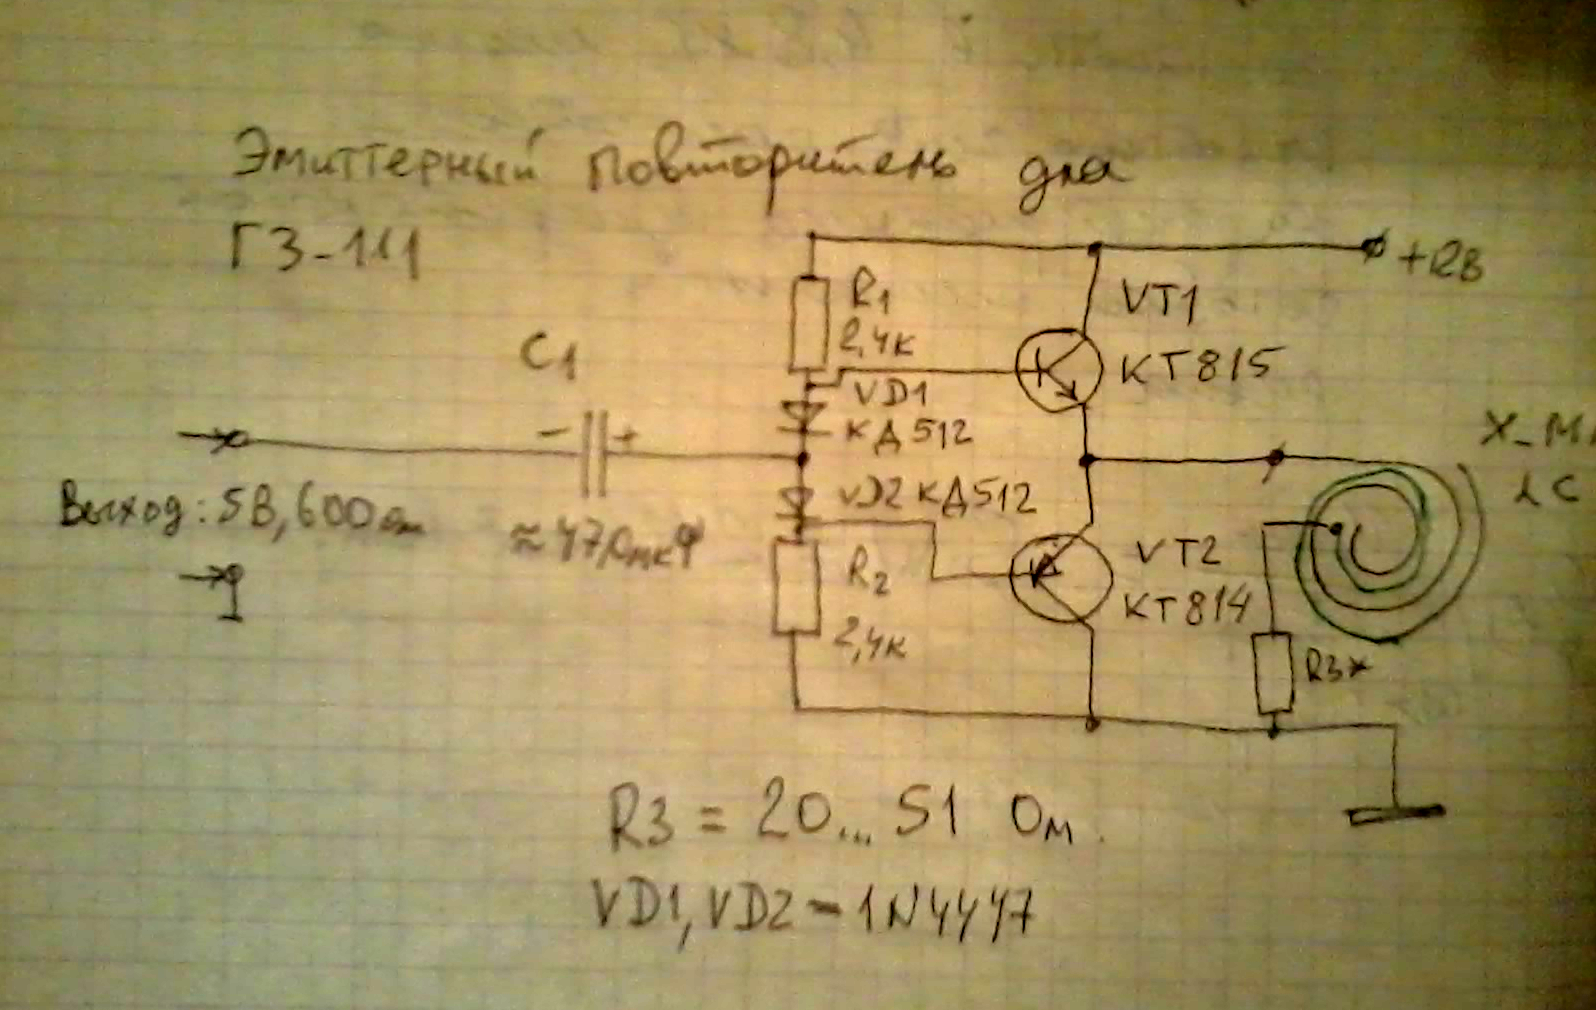 Эмиттерный повторитель для
ГЗ-111
+12В
R1
2,4к
VT1
КТ815
C1
VD1
КД512
- +
X_M
LC
Выход: 5В, 600 ом
≈470мкФ
VD2 КД512
R2
2,4к
VT2
КТ814
R3*
R3 = 20... 51 Ом.
VD1, VD2 - 1N4447